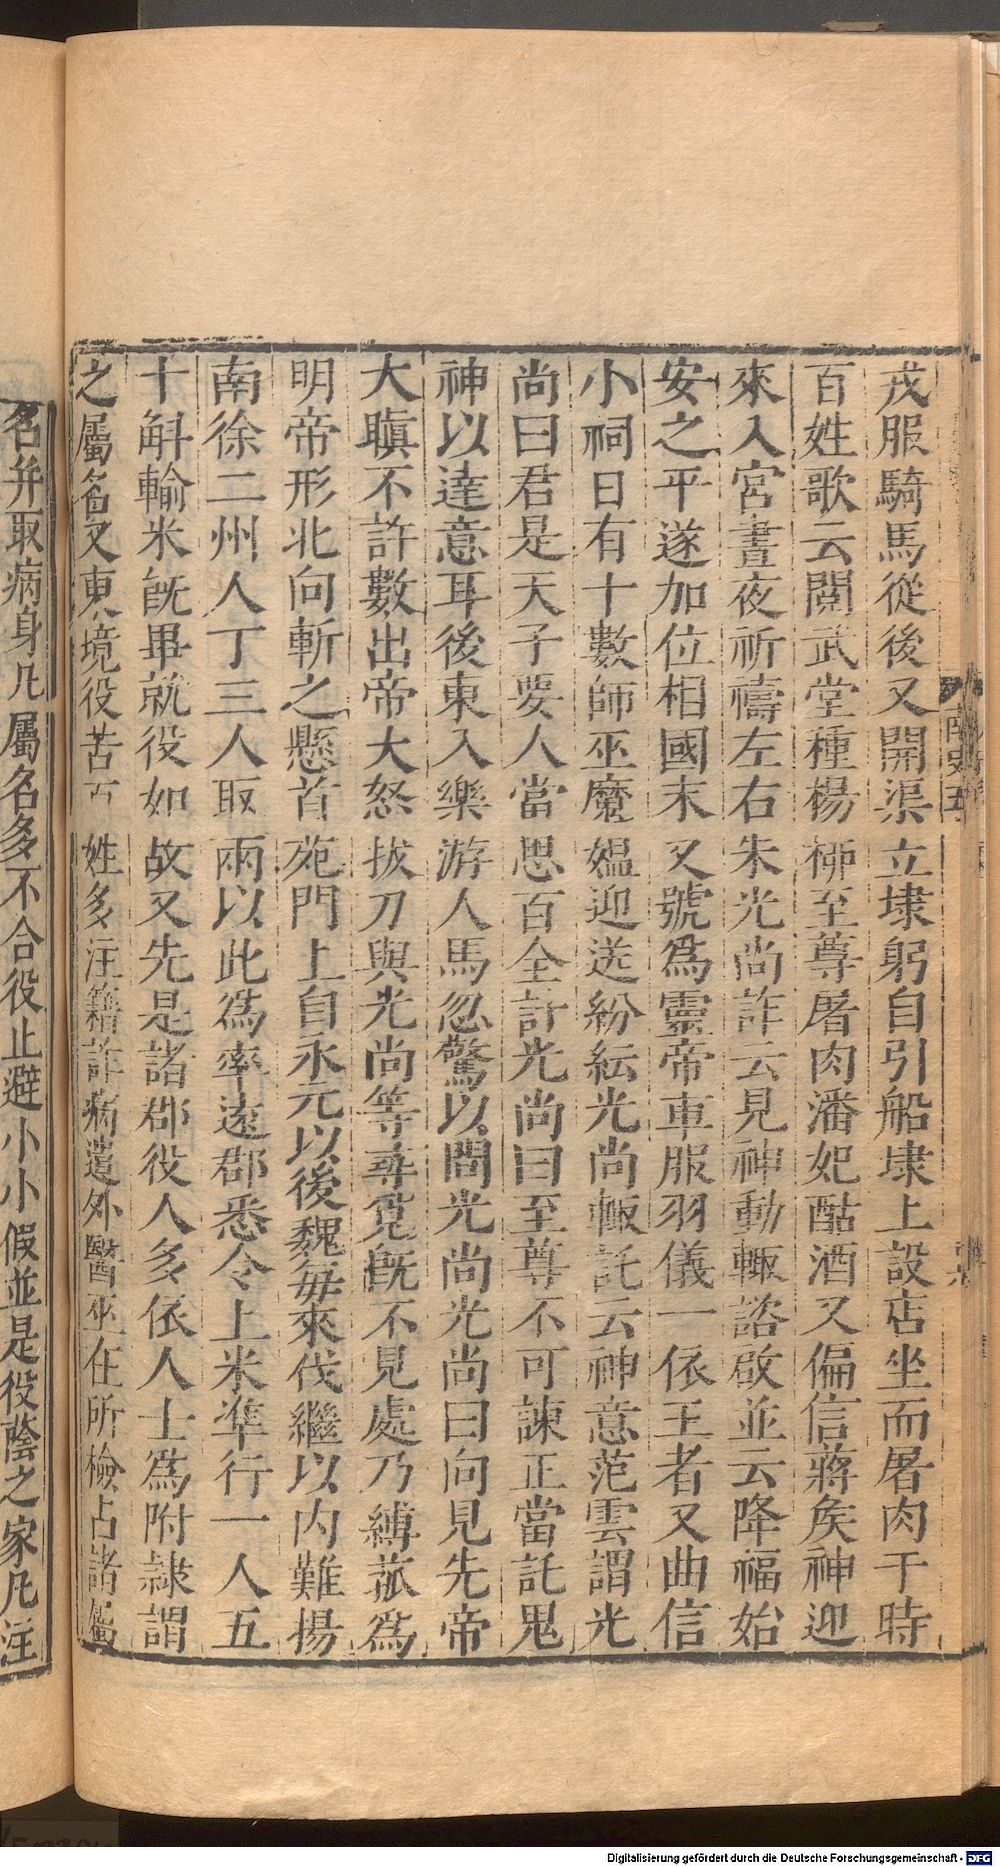 戎服騎馬從後又開渠立埭躬自引船埭上設店坐而屠肉于時
百姓歌云閱武堂種楊栁至尊屠肉潘妃酤酒又偏信蔣矦神迎
來入宮晝夜祈禱左右朱光尚詐云見神動輙諮啟並云降福始
安之平遂加位相國末又號爲靈帝車服羽儀一依王者又曲信
小祠日有十數師巫魔媼迎送紛紜光尚輙託云神意范雲謂光
尚曰君是天子要人當思百全計光尚曰至尊不可諫正當託鬼
神以達意耳後東入樂游人馬忽驚以問光尚光尚曰向見先帝
大瞋不許數出帝大怒拔刀與光尚等尋覔旣不見處乃縛菰爲
明帝形北向斬之懸首苑門上自永元以後魏每來伐繼以內難揚
南徐二州人丁三人取兩以此爲率遠郡悉令上米准行一人五
十斛輸米旣畢就役如故又先是諸郡役人多依人士爲附隷謂
之屬名又東境役苦百姓多注籍詐病遣外醫巫在所檢占諸屬
名并取病身凡屬名多不合役止避小小假並是役蔭之家凡注
Digitalisierung gefördert durch die Deutsche Forschungsgemeinschaft - DFG